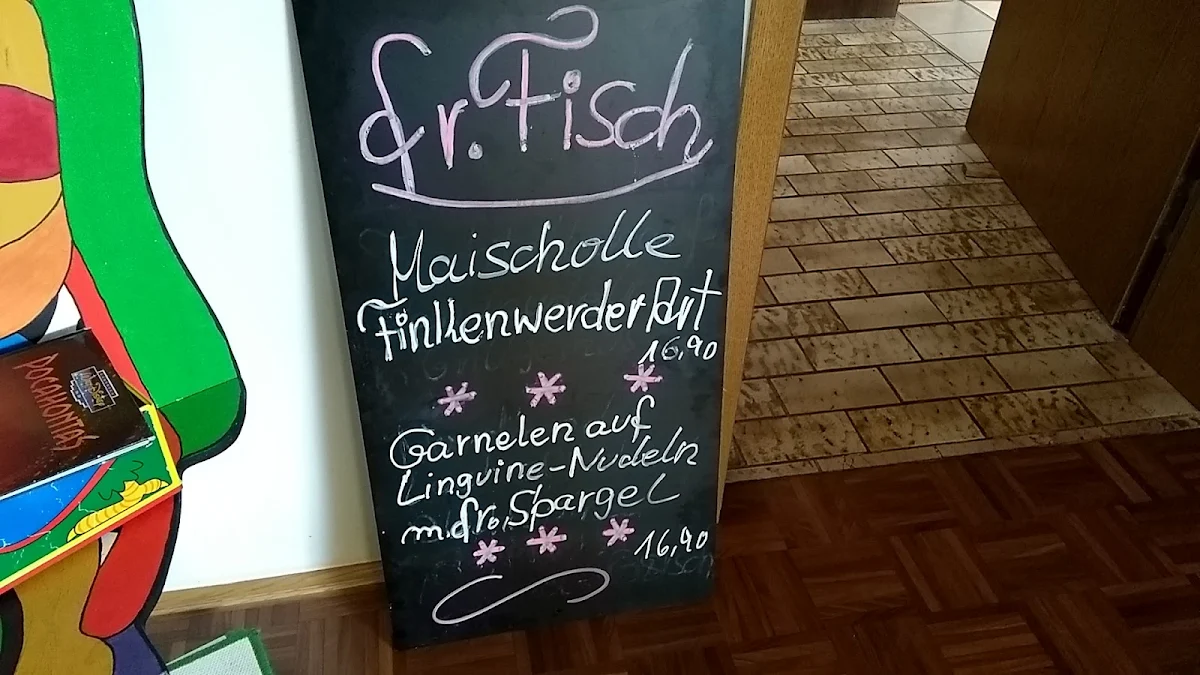 fr. Fisch
Maischolle
Finkenwerder Art
16,90
Garnelen auf
Linguine-Nudeln
m. fr. Spargel
16,90
POCAHONTAS